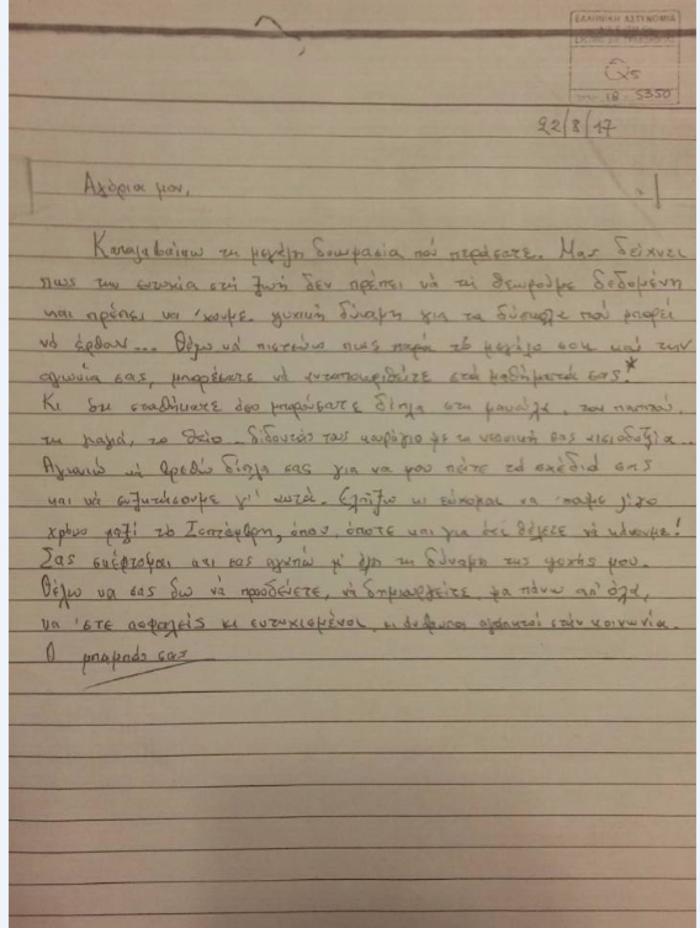 ΕΛΛΗΝΙΚΗ ΑΣΤΥΝΟΜΙΑ
18 - 5350
22/8/17
Αγόρια μου,
Καταλαβαίνω τη μεγάλη δοκιμασία πού περάσατε. Μας δείχνει
πως την ευτυχία στή ζωή δεν πρέπει νά τή θεωρούμε δεδομένη
και πρέπει να 'χουμε ψυχική δύναμη για τα δύσκολα πού μπορεί
νά έρθουν... Θέλω νά πιστεύω πως παρά τό μεγάλο σοκ και την
αγωνία σας, μπορέσατε νά ανταποκριθείτε στά μαθήματά σας.*
Κι ότι σταθήκατε όσο μπορούσατε δίπλα στη μανούλα, τον παππού,
τη γιαγιά, το θείο δίδοντάς τους κουράγιο με τη νεανική σας αισιοδοξία...
Αγωνιώ νά βρεθώ δίπλα σας για να μου πείτε τά σχέδιά σας
και νά συζητήσουμε γι' αυτά. Ελπίζω κι εύχομαι να 'παμε λίγο
χρόνο μαζί τό Σεπτέμβρη, όπου, όποτε και για ότι θέλετε νά κάνουμε!
Σας σκέφτομαι και σας αγαπώ μ' όλη τη δύναμη της ψυχής μου.
Θέλω να σας δω νά προοδεύετε, νά δημιουργείτε, μα πάνω απ' όλα,
να 'στε ασφαλείς κι ευτυχισμένοι, κι άνθρωποι αγαπητοί στήν κοινωνία.
Ο μπαμπάς σας